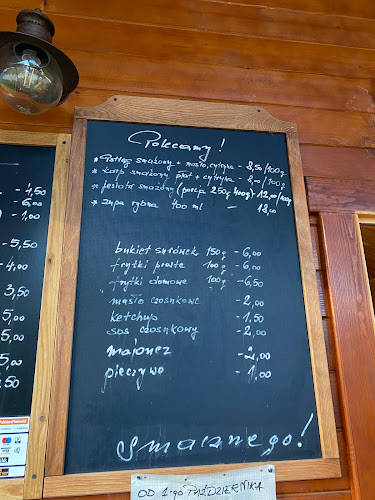 Polecamy!
* Pstrąg smażony + masło, cytryna - 8,50/100g
* Karp smażony płat + cytryna - 8,00/100g
* Jesiotr smażony (porcja 250g, 400g) 12,00/100g
* Zupa rybna 400 ml 18,00
bukiet surówek 150g - 6,00
frytki proste 100g - 6,00
frytki domowe 100g - 6,50
masło czosnkowe - 2,00
ketchup - 1,50
sos czosnkowy - 2,00
majonez - 2,00
pieczywo - 1,00
Smacznego!
OD 1-go PAŹDZIERNIKA
- 4,50
- 6,00
- 1,00
- 5,50
- 4,00
3,50
5,00
5,00
5,00
2,50